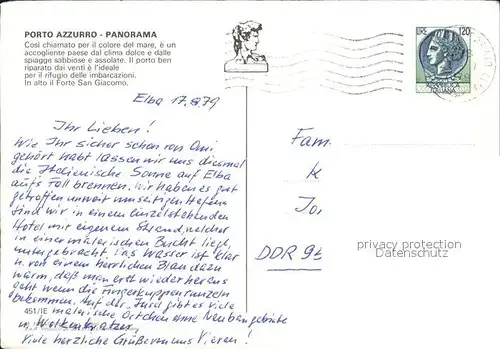 PORTO AZZURRO - PANORAMA
Così chiamato per il colore del mare, è un
accogliente paese dal clima dolce e dalle
spiagge sabbiose e assolate. Il porto ben
riparato dai venti è l'ideale
per il rifugio delle imbarcazioni.
In alto il Forte San Giacomo.
L. 120
Elba 17.8.79
Ihr Lieben!
Wie Ihr sicher schon von Omi
gehört habt lassen wir uns diesmal
die Italienische Sonne auf Elba
aufs Fell brennen. Wir haben es gut
getroffen unweit
sind wir in einem einzelstehenden
Hotel mit eigenem Strand, welcher
in einer malerischen Bucht liegt,
untergebracht. Das Wasser ist klar
u. von einem herrlichen Blau dazu
warm, daß man erst wieder heraus
geht wenn die Fingerkuppen runzeln
bekommen. Auf der Insel gibt es viele
malerische Örtchen ohne Neubaugebiete
u. Wolkenkratzer.
Viele herzliche Grüße von uns Vieren!
451/E
Fam.
K
Jo,
DDR 92
privacy protection
Datenschutz